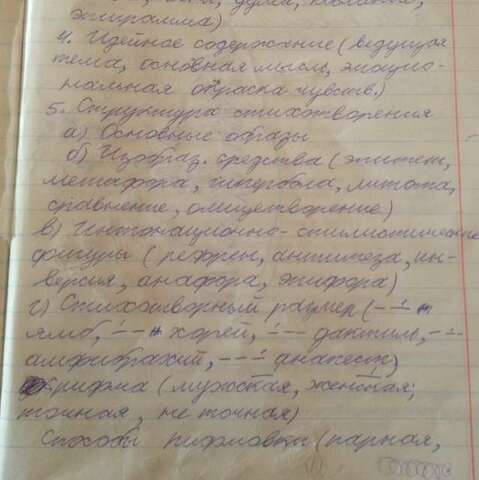 эпиграмма)
4. Идейное содержание (ведущая
тема, основная мысль, эмоцио-
нальная окраска чувств.)
5. Структура стихотворения
а) Основные образы
б) Изобраз. средства (эпитет,
метафора, гипербола, литота,
сравнение, олицетворение)
в) Интонационно-стилистические
фигуры (рефрен, антитеза, ин-
версия, анафора, эпифора)
г) Стихотворный размер (--́
ямб, -́- хорей, -́-- дактиль, --́-
амфибрахий, ---́ анапест)
рифма (мужская, женская;
точная, не точная)
Способы рифмовки (парная,